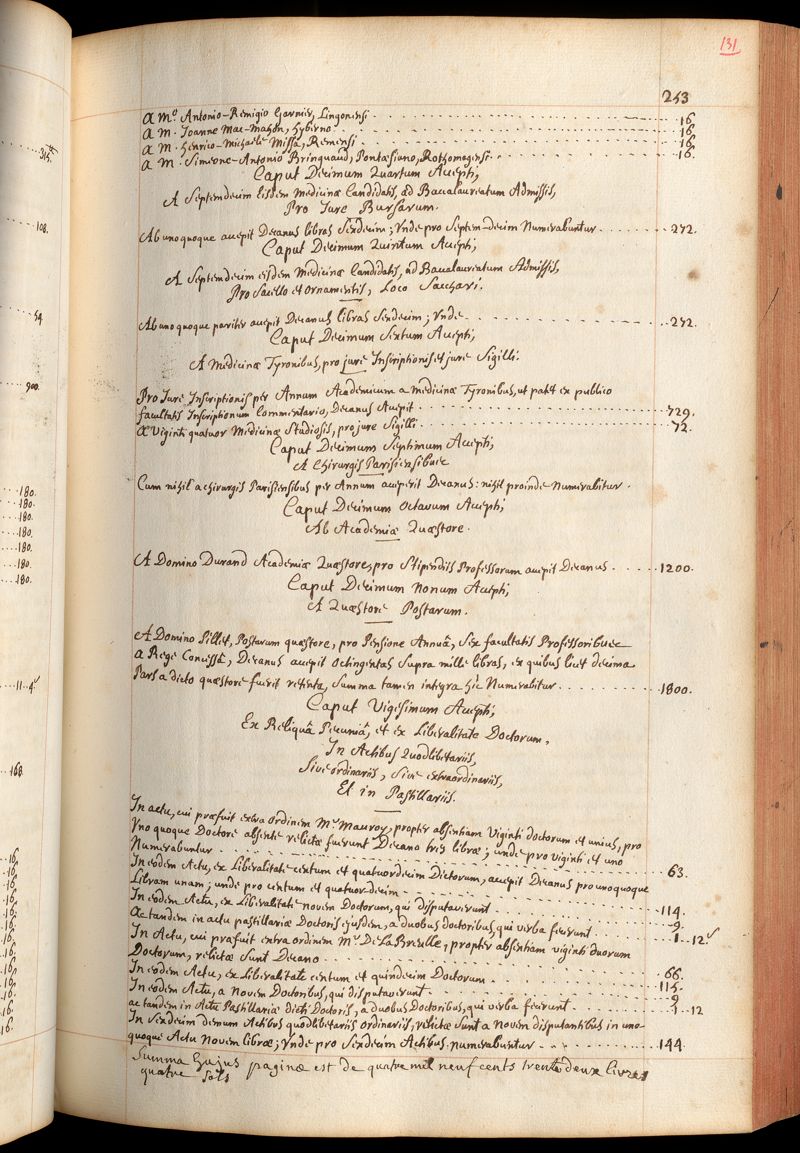 131
253
A Mo. Antonio-Remigio Garnier, Lingonensi 16
A M. Joanne Mac-Mahon, hyberno 16
A M. Henrico-Michaele Missa, Remensi 16
A M. Simeone-Antonio Bringuaud, Pontæsiano, Rothomagensi 16.
Caput Decimum Quartum Accepti,
A Septemdecim Eisdem Medicinæ Candidatis, ad Baccalaureatum Admissis,
Pro Jure Bursarum.
Ab unoquoque accepit Decanus libras Sexdecim; Vnde pro Septem-decim Numerabuntur 272.
Caput Decimum Quintum Accepti;
A Septemdecim eisdem Medicinæ Candidatis, ad Baccalaureatum Admissis,
Pro Sacello et Ornamentis, Loco Sacchari.
Ab unoquoque pariter accepit Decanus libras Sexdecim; Vnde 272.
Caput Decimum Sextum Accepti,
A Medicinæ Tyronibus, pro jure Inscriptionis et jure Sigilli.
Pro Jure Inscriptionis per Annum Academicum a medicinæ Tyronibus, ut patet ex publico
facultatis Inscriptionum Commentario, Decanus Accepit 729.
A Viginti quatuor Medicinæ Studiosis, pro jure Sigilli 72.
Caput Decimum Septimum Accepti,
A Chirurgis Parisiensibus
Cum nihil a chirurgis Parisiensibus per Annum acceperit Decanus: nihil proinde Numerabitur.
Caput Decimum Octavum Accepti;
Ab Academiæ Quæstore.
A Domino Durand Academiæ Quæstore, pro Stipendiis Professorum accepit Decanus 1200.
Caput Decimum Nonum Accepti,
A Quæstore Postarum.
A Domino Pillet, Postarum quæstore, pro Pensione Annuâ, Sex facultatis Professoribus
a Rege Concessâ, Decanus accepit octingentas supra mille libras, ex quibus licet decima
Pars a dicto quæstore fuerit retenta, Summa tamen integra hîc Numerabitur 1800.
Caput Vigesimum Accepti,
Ex Reliquâ Pecuniâ, et ex Liberalitate Doctorum,
In Actibus Quodlibetariis,
Sive ordinariis, Sive extraordinariis,
Et in Pastillariis.
In actu, cui præfuit extra ordinem Mr. Mauroy, propter absentiam Viginti doctorum et unius, pro
Vno quoque Doctore absente relictæ fuerunt Decano tres libræ; unde pro viginti et uno
Numerabuntur 63.
In eodem Actu, ex Liberalitate centum et quatuordecim Doctorum, accepit Decanus pro unoquoque
Libram unam; unde pro centum et quatuor-decim 114.
In eodem Actu, ex Liberalitate novem Doctorum, qui disputaverunt 9.
Ac tandem in actu pastillariæ Doctoris ejusdem, a duobus doctoribus, qui verba fecerunt 1 .. 12s
In Actu, cui præfuit extra ordinem Mr. De La Breulle, propter absentiam viginti duorum
Doctorum, relictæ sunt Decano 66.
In eodem Actu, ex Liberalitate centum et quindecim Doctorum 115.
In eodem Actu, a Novem Doctoribus, qui disputaverunt 9
ac tandem in Actu Pastillariæ dicti Doctoris, a duobus Doctoribus, qui verba fecerunt 1 .. 12
In Sexdecim demum Actibus quodlibetariis ordinariis, relictæ sunt a novem disputantibus in uno-
quoque Actu Novem libræ; Vnde pro Sexdecim Actibus numerabuntur 144.
Summa hujus paginæ est de quatre mil neuf cents trente deux livres
quatre sols
108.
54.
900.
180.
180.
180.
180.
180.
180.
180.
11..4s
168.
16.
16.
16.
16.
16.
16.
16.
16.
16.
16.
16.
16.
16.
16.